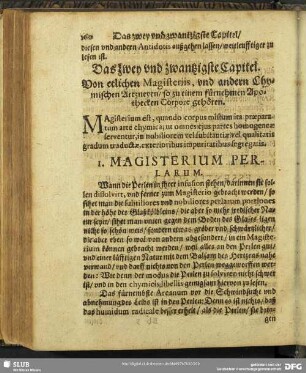 Das zwey vnd zwantzigste Capitel/
diesen vnd andern Antidotis außgehen lassen/ weitleufftiger zu
lesen ist.
Das zwey vnd zwantzigste Capitel.
Von etlichen Magisteriis, vnd andern Chy-
mischen Artzneyen/ so zu einem fürnehmen Apo-
thecken Corpore gehören.
Magisterium est, quando corpus mistum ita præpara-
tum arte chymica, ut omnes ejus partes homogeneæ
conserventur, in nobiliorem vel substantiæ vel qualitatis
gradum traductæ, exterioribus impuritatibus segregatis.
1. MAGISTERIUM PER-
LARUM.
Wann die Perlen in ihrer
sollen dissolvirt, vnd ferner zum Magisterio gebracht werden/ so
sihet man die subtiliores vnd nobiliores perlarum portiones
in der höhe der Glaßphiolen/ die aber so mehr irrdischer Na-
tur seyn/ sihet man vnten gegen dem Boden des Glases ligen
nicht so schön weiß/ sondern etwas gröber vnd schwärtzlicher/
die aber eben so wol von andern abgesondert/ in ein Magiste-
rium können gebracht werden/ weil alles an den Perlen gut/
vnd einer läfftigen Natur mit dem Balsam des Hertzens nahe
verwand/ vnd darff nichts von der Perlen weggeworffen wer-
den. Wie denn der modus die Perlen zu solviren nicht schwer
ist/ vnd in den chymicis libellis genugsam hiervon zu lesen.
Das fürnembste Arcanum vor die Schwindsucht vnd
abnehmung des Leibs ist in den Perlen: Denn es ist nichts/ daß
das humidum radicale besser erhelt/ als die Perlen/ sie
gen
SLUB
DFG